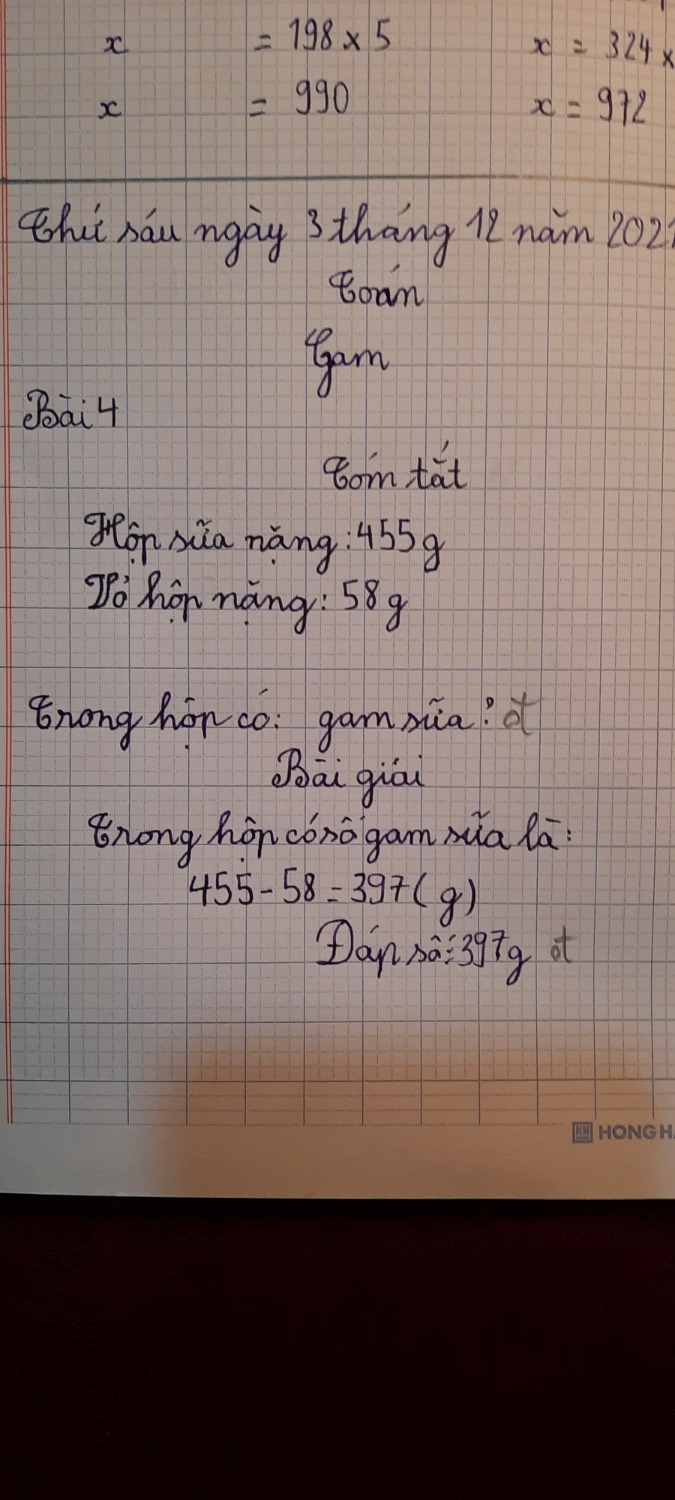 x = 198 x 5 x = 324 x
x = 990 x = 972
Thứ sáu ngày 3 tháng 12 năm 2021
Toán
Gam
Bài 4
Tóm tắt
Hộp sữa nặng : 455g
Vỏ hộp nặng : 58g
Trong hộp có : gam sữa ?
Bài giải
Trong hộp có số gam sữa là :
455 - 58 = 397 ( g )
Đáp số : 397g
HONG HA